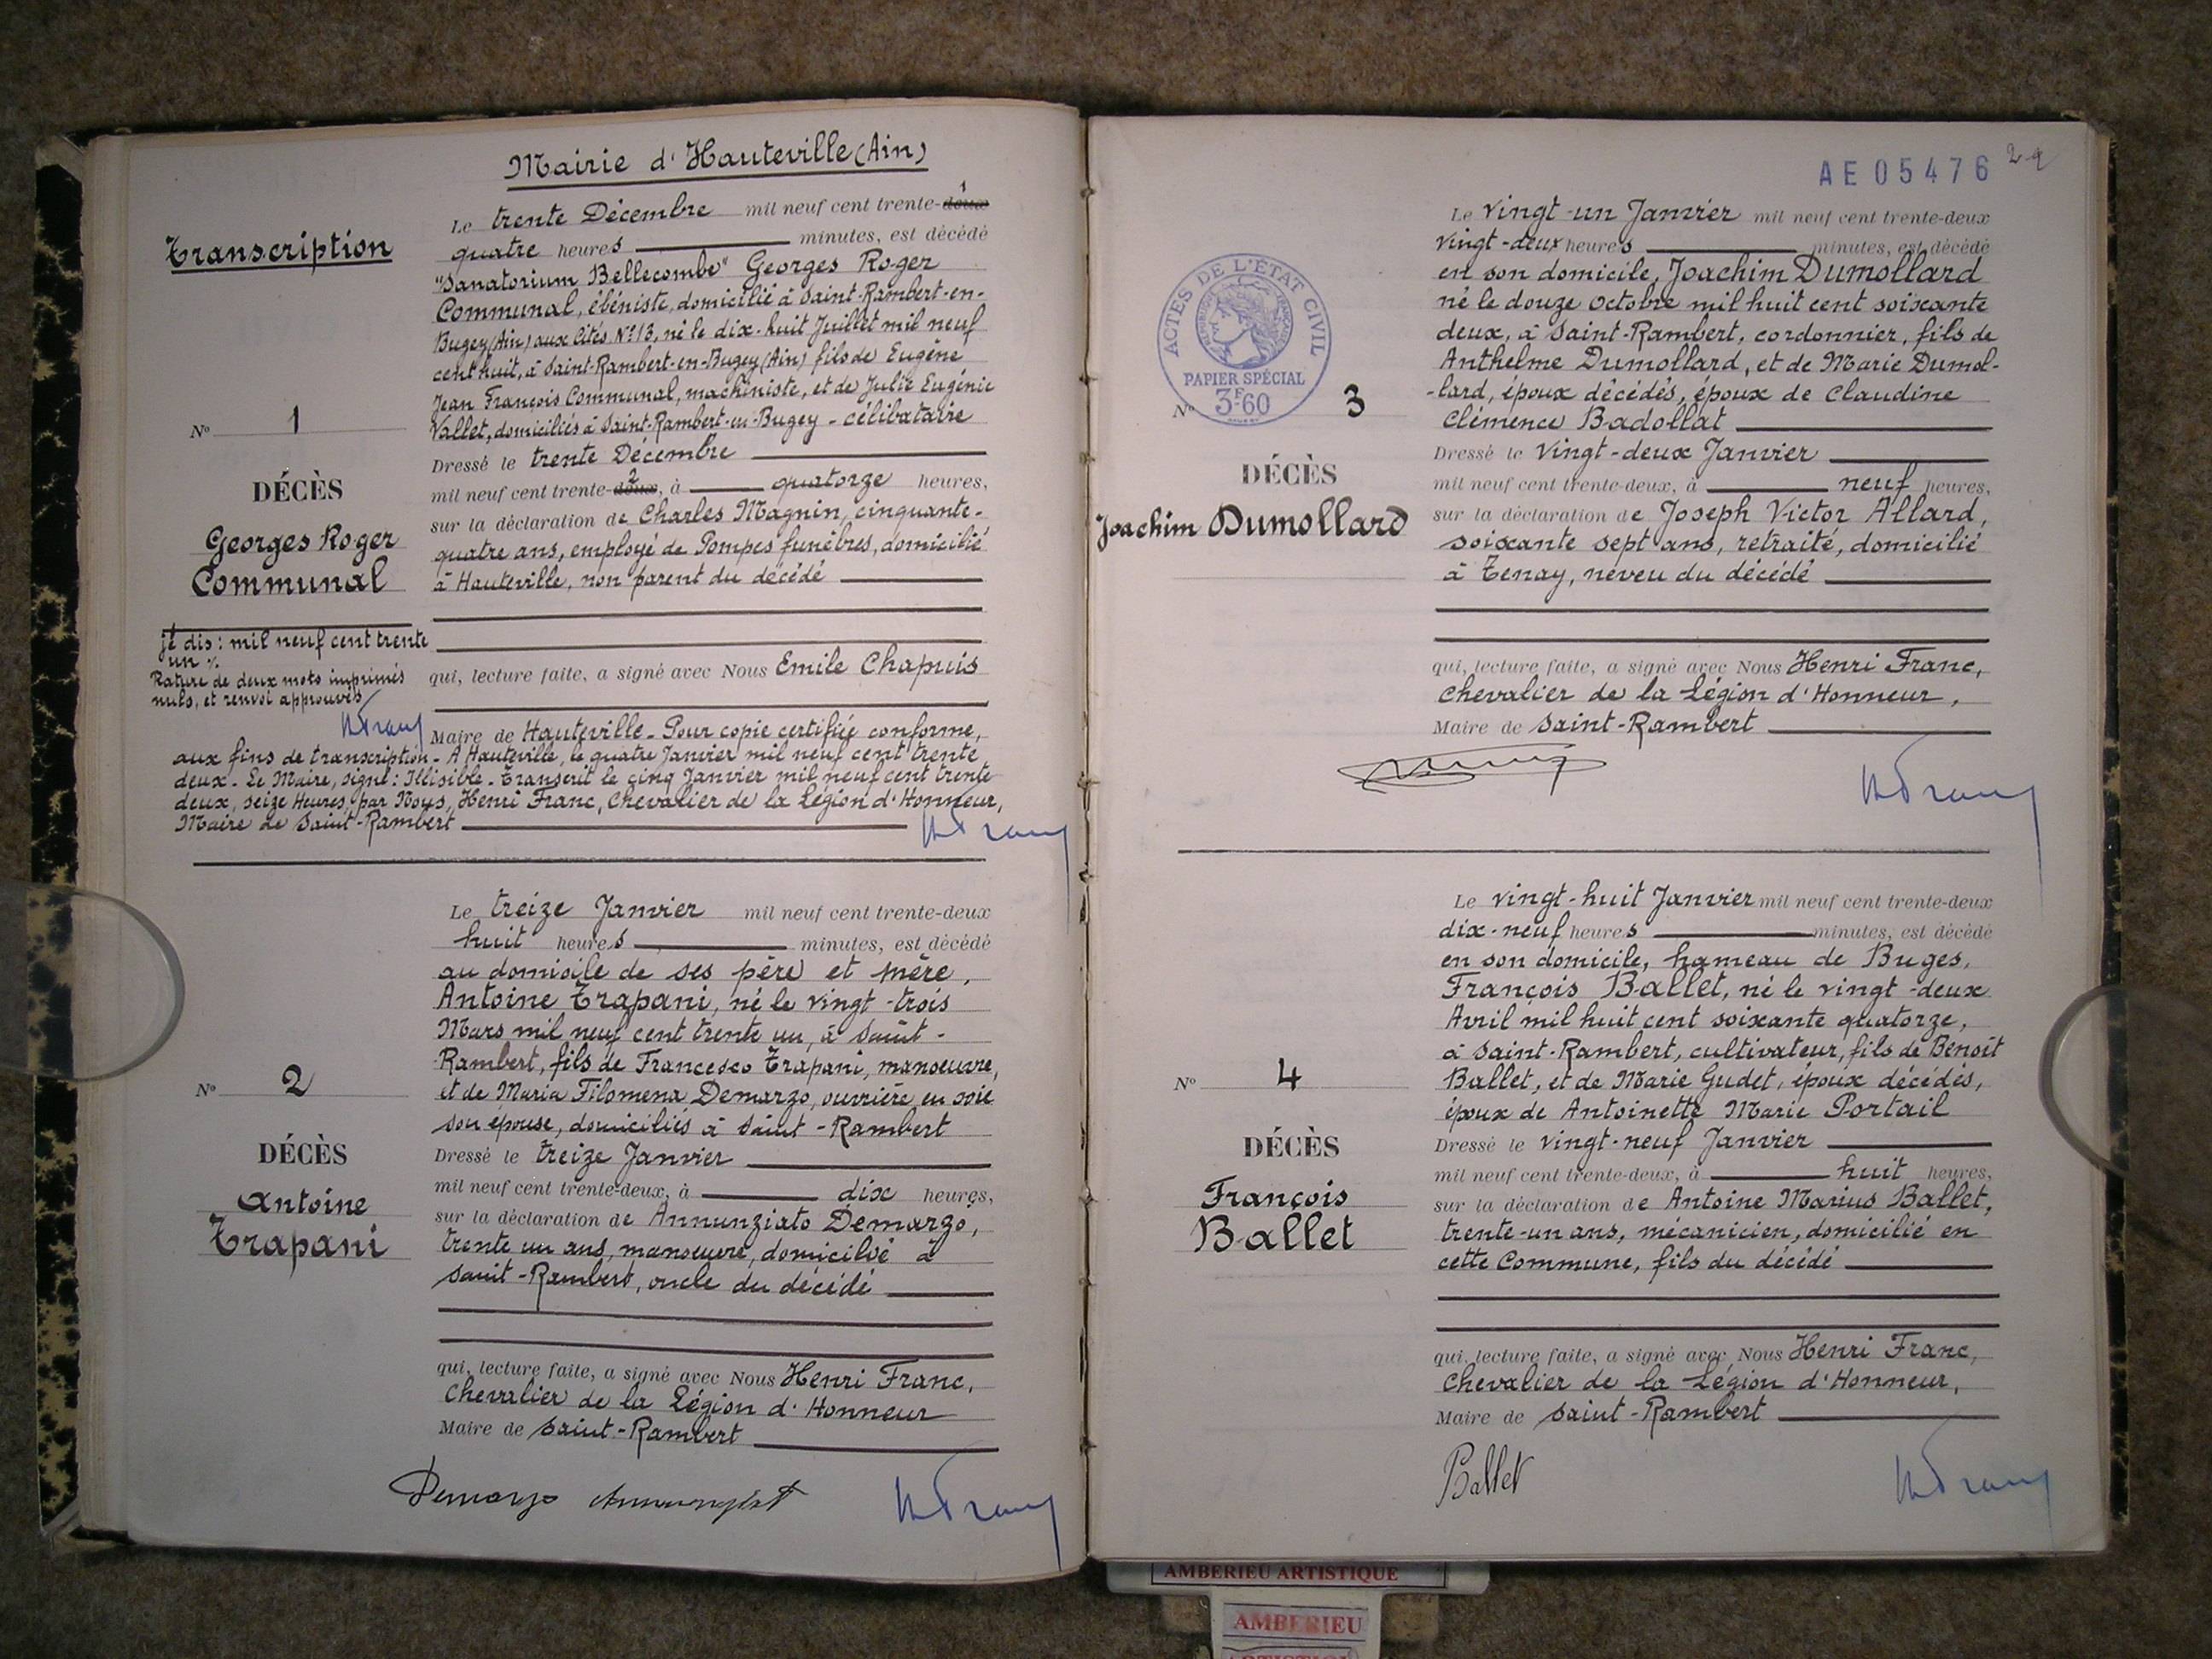 Mairie d'Hauteville (Ain)
Transcription
Le trente Décembre mil neuf cent trente-doux 1
quatre heures minutes, est décédé
"Sanatorium Bellecombe" Georges Roger
Communal, ébéniste, domicilié à Saint-Rambert-en-
Bugey (Ain) aux Cités N° 13, né le dix-huit Juillet mil neuf
cent huit, à Saint-Rambert-en-Bugey (Ain) fils de Eugène
Jean François Communal, machiniste, et de Julie Eugénie
Vallet, domiciliés à Saint-Rambert-en-Bugey - célibataire
N° 1
DÉCÈS
Georges Roger
Communal
Dressé le trente Décembre
mil neuf cent trente-deux 2, à quatorze heures,
sur la déclaration de Charles Magnin, cinquante-
quatre ans, employé de Pompes funèbres, domicilié
à Hauteville, non parent du décédé
je dis : mil neuf cent trente
un %
Rature de deux mots imprimés
nuls, et renvoi approuvés
HFranc
qui, lecture faite, a signé avec Nous Emile Chapuis
Maire de Hauteville - Pour copie certifiée conforme,
aux fins de transcription - A Hauteville, le quatre Janvier mil neuf cent trente
deux - Le Maire, signé : Illisible - Transcrit le cinq Janvier mil neuf cent trente
deux, seize Heures, par Nous, Henri Franc, Chevalier de la Légion d'Honneur,
Maire de Saint-Rambert
HFranc
Le treize Janvier mil neuf cent trente-deux
huit heures minutes, est décédé
au domicile de ses père et mère,
Antoine Trapani, né le vingt-trois
Mars mil neuf cent trente un, à Saint-
Rambert, fils de Francesco Trapani, manoeuvre,
et de Maria Filomena Demarzo, ouvrière en soie
son épouse, domiciliés à Saint-Rambert
N° 2
DÉCÈS
Antoine
Trapani
Dressé le treize Janvier
mil neuf cent trente-deux, à dix heures,
sur la déclaration de Annunziato Demarzo,
trente un ans, manoeuvre, domicilié à
Saint-Rambert, oncle du décédé
qui, lecture faite, a signé avec Nous Henri Franc,
Chevalier de la Légion d'Honneur
Maire de Saint-Rambert
Demarzo Annunziat
HFranc
AE05476
29
Le vingt-un Janvier mil neuf cent trente-deux
vingt-deux heures minutes, est décédé
en son domicile, Joachim Dumollard
né le douze Octobre mil huit cent soixante
deux, à Saint-Rambert, cordonnier, fils de
Anthelme Dumollard, et de Marie Dumol-
-lard, époux décédés, époux de Claudine
Clémence Badollat
ACTES DE L'ÉTAT CIVIL
RÉPUBLIQUE FRANÇAISE
PAPIER SPÉCIAL
3F60
N° 3
DÉCÈS
Joachim Dumollard
Dressé le vingt-deux Janvier
mil neuf cent trente-deux, à neuf heures,
sur la déclaration de Joseph Victor Allard,
soixante sept ans, retraité, domicilié
à Tenay, neveu du décédé
qui, lecture faite, a signé avec Nous Henri Franc,
Chevalier de la Légion d'Honneur,
Maire de Saint-Rambert
HFranc
Le vingt-huit Janvier mil neuf cent trente-deux
dix-neuf heures minutes, est décédé
en son domicile, hameau de Buges,
François Ballet, né le vingt-deux
Avril mil huit cent soixante quatorze,
à Saint-Rambert, cultivateur, fils de Benoît
Ballet, et de Marie Gudet, époux décédés,
époux de Antoinette Marie Portail
N° 4
DÉCÈS
François
Ballet
Dressé le vingt-neuf Janvier
mil neuf cent trente-deux, à huit heures,
sur la déclaration de Antoine Marius Ballet,
trente-un ans, mécanicien, domicilié en
cette Commune, fils du décédé
qui, lecture faite, a signé avec Nous Henri Franc,
Chevalier de la Légion d'Honneur,
Maire de Saint-Rambert
Ballet
HFranc
AMBERIEU ARTISTIQUE
AMBERIEU
ARTISTIQUE